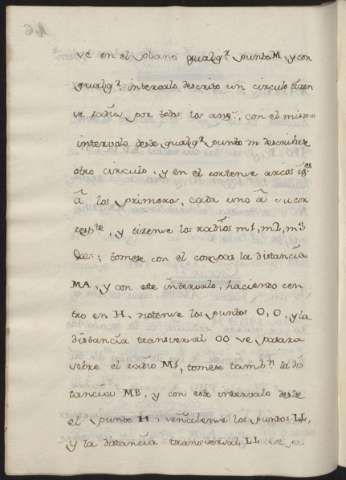 16
se en el plano qualqᵉ punto M, y con
qualqᵉ intervalo descrito un circulo tiren
se radios por todos los angˢ, con el mismo
intervalo desde qualqᵉ punto m describase
otro circulo, y en el cortense arcos igˢ
á los primeros, cada uno á su cor
respᵗᵉ, y tirense los radios m1, m2, m3
&ᵃ; tomese con el compas la distancia
MA, y con este intervalo, haciendo cen
tro en H, notense los puntos O, O, y la
distancia transversal OO se pasara
sobre el radio M1, tomese tambⁿ la dis
tancia MB, y con este intervalo desde
el punto H señalense los puntos LL,
y la distancia transversal LL